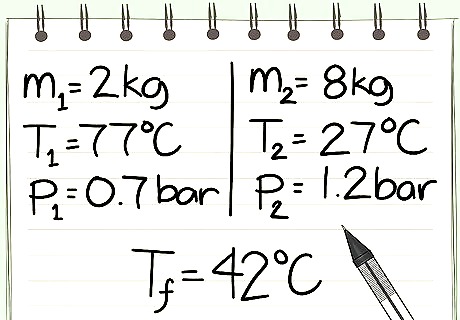 m₁=2kg
T₁=77°C
P₁=0.7bar
m₂=8kg
T₂=27°C
P₂=1.2bar
T_f=42°C